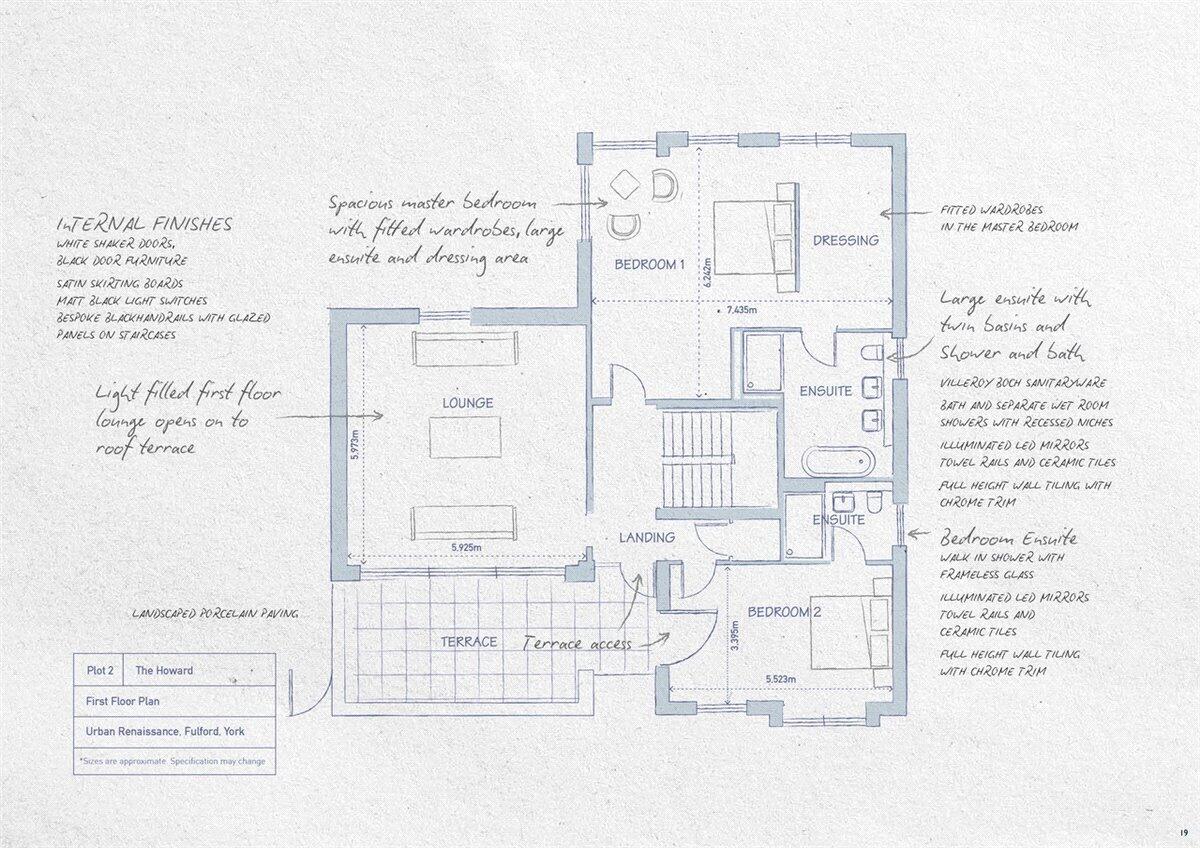 InTERNAL FINISHES
WHITE SHAKER DOORS,
BLACK DOOR FURNITURE
SATIN SKIRTING BOARDS
MATT BLACK LIGHT SWITCHES
BESPOKE BLACKHANDRAILS WITH GLAZED
PANELS ON STAIRCASES
Light filled first floor
lounge opens on to
roof terrace
LANDSCAPED PORCELAIN PAVING
Spacious master bedroom
with fitted wardrobes, large
ensuite and dressing area
BEDROOM 1
6.242m
7.435m
DRESSING
LOUNGE
5.973m
5.925m
ENSUITE
ENSUITE
LANDING
TERRACE
Terrace access
BEDROOM 2
3.395m
5.523m
FITTED WARDROBES
IN THE MASTER BEDROOM
Large ensuite with
twin basins and
shower and bath
VILLEROY BOCH SANITARYWARE
BATH AND SEPARATE WET ROOM
SHOWERS WITH RECESSED NICHES
ILLUMINATED LED MIRRORS
TOWEL RAILS AND CERAMIC TILES
FULL HEIGHT WALL TILING WITH
CHROME TRIM
Bedroom Ensuite
WALK IN SHOWER WITH
FRAMELESS GLASS
ILLUMINATED LED MIRRORS
TOWEL RAILS AND
CERAMIC TILES
FULL HEIGHT WALL TILING
WITH CHROME TRIM
Plot 2 The Howard
First Floor Plan
Urban Renaissance, Fulford, York
*Sizes are approximate. Specification may change
19